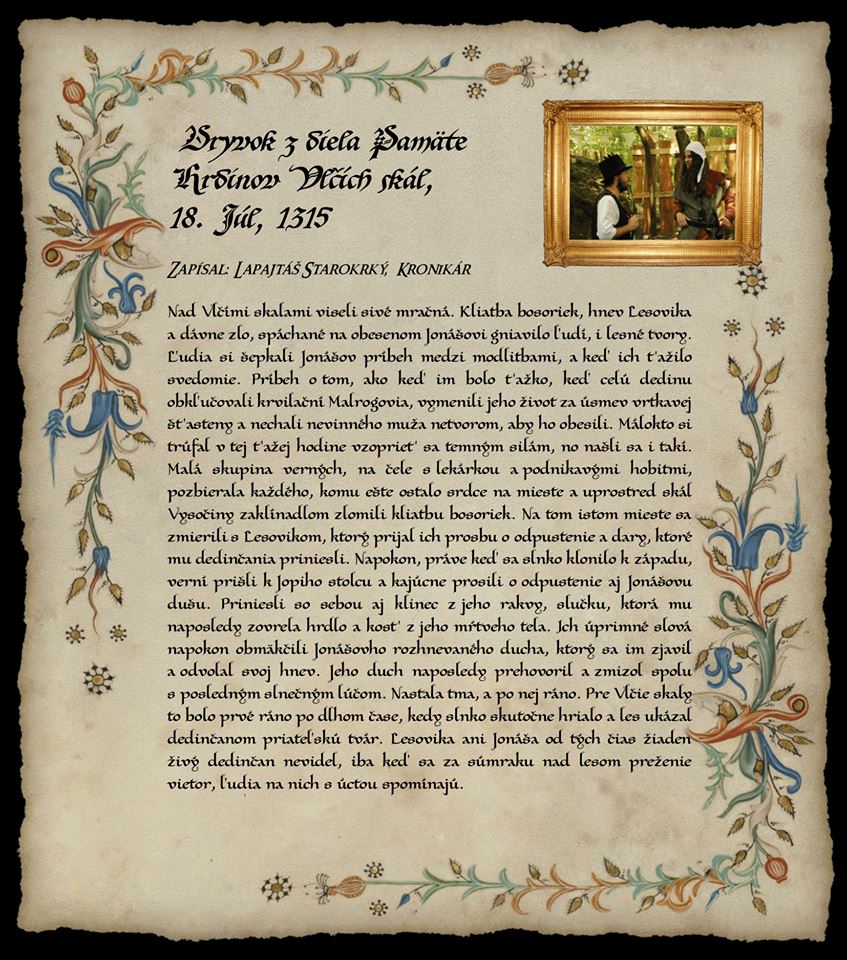 Úryvok z diela Pamäte
Hrdinov Vlčích skál,
18. Júl, 1315
Zapísal: Lapajtáš Starokrký, Kronikár
Nad Vlčími skalami viseli sivé mračná. Kliatba bosoriek, hnev Lesovika
a dávne zlo, spáchané na obesenom Jonášovi gniavilo ľudí, i lesné tvory.
Ľudia si šepkali Jonášov príbeh medzi modlitbami, a keď ich ťažilo
svedomie. Príbeh o tom, ako keď im bolo ťažko, keď celú dedinu
obkľučovali krvilační Malrogovia, vymenili jeho život za úsmev vrtkavej
šťasteny a nechali nevinného muža netvorom, aby ho obesili. Málokto si
trúfal v tej ťažej hodine vzoprieť sa temným silám, no našli sa i takí.
Malá skupina verných, na čele s lekárkou a podnikavými hobitmi,
pozbierala každého, komu ešte ostalo srdce na mieste a uprostred skál
Vysočiny zaklínadlom zlomili kliatbu bosoriek. Na tom istom mieste sa
zmierili s Lesovikom, ktorý prijal ich prosbu o odpustenie a dary, ktoré
mu dedinčania priniesli. Napokon, práve keď sa slnko klonilo k západu,
verní prišli k Jopiho stolcu a kajúcne prosili o odpustenie aj Jonášovu
dušu. Priniesli so sebou aj klinec z jeho rakvy, slučku, ktorá mu
naposledy zovrela hrdlo a kosť z jeho mŕtveho tela. Ich úprimné slová
napokon obmäkčili Jonášovho rozhnevaného ducha, ktorý sa im zjavil
a odvolal svoj hnev. Jeho duch naposledy prehovoril a zmizol spolu
s posledným slnečným lúčom. Nastala tma, a po nej ráno. Pre Vlčie skaly
to bolo prvé ráno po dlhom čase, kedy slnko skutočne hrialo a les ukázal
dedinčanom priateľskú tvár. Lesovika ani Jonáša od tých čias žiaden
živý dedinčan nevidel, iba keď sa za súmraku nad lesom preženie
vietor, ľudia na nich s úctou spomínajú.